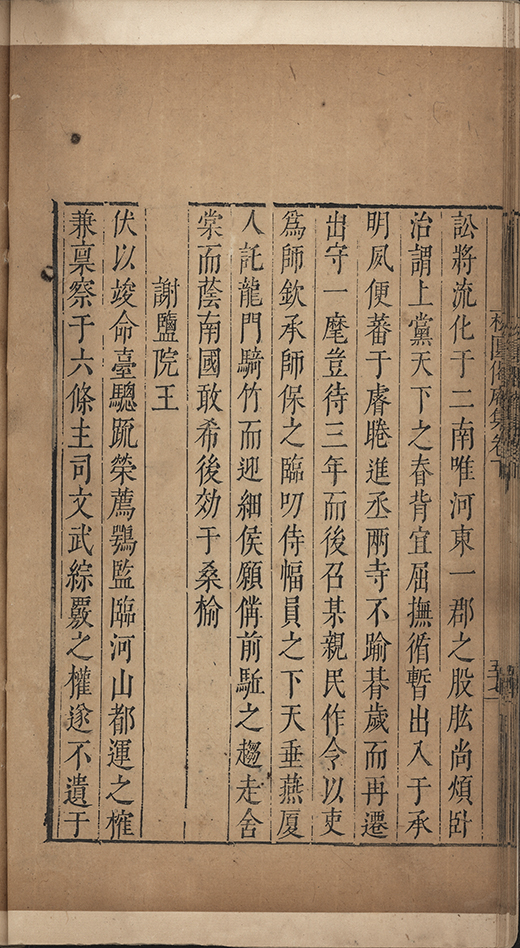 訟將流化于二南唯河東一郡之股肱尚煩卧
治謂上黨天下之春背宜屈撫循暫出入于承
明夙便蕃于睿睠進丞兩寺不踰朞歲而再遷
出守一麾豈待三年而後召某親民作令以吏
爲師欽承師保之臨叨侍幅員之下天垂燕厦
人託龍門騎竹而迎細侯願儕前駈之趨走舍
棠而蔭南國敢希後効于桑榆
謝鹽院王
伏以竣命臺驄䟽榮薦鶚監臨河山都運之榷
兼稟察于六條主司文武綜覈之權遂不遺于